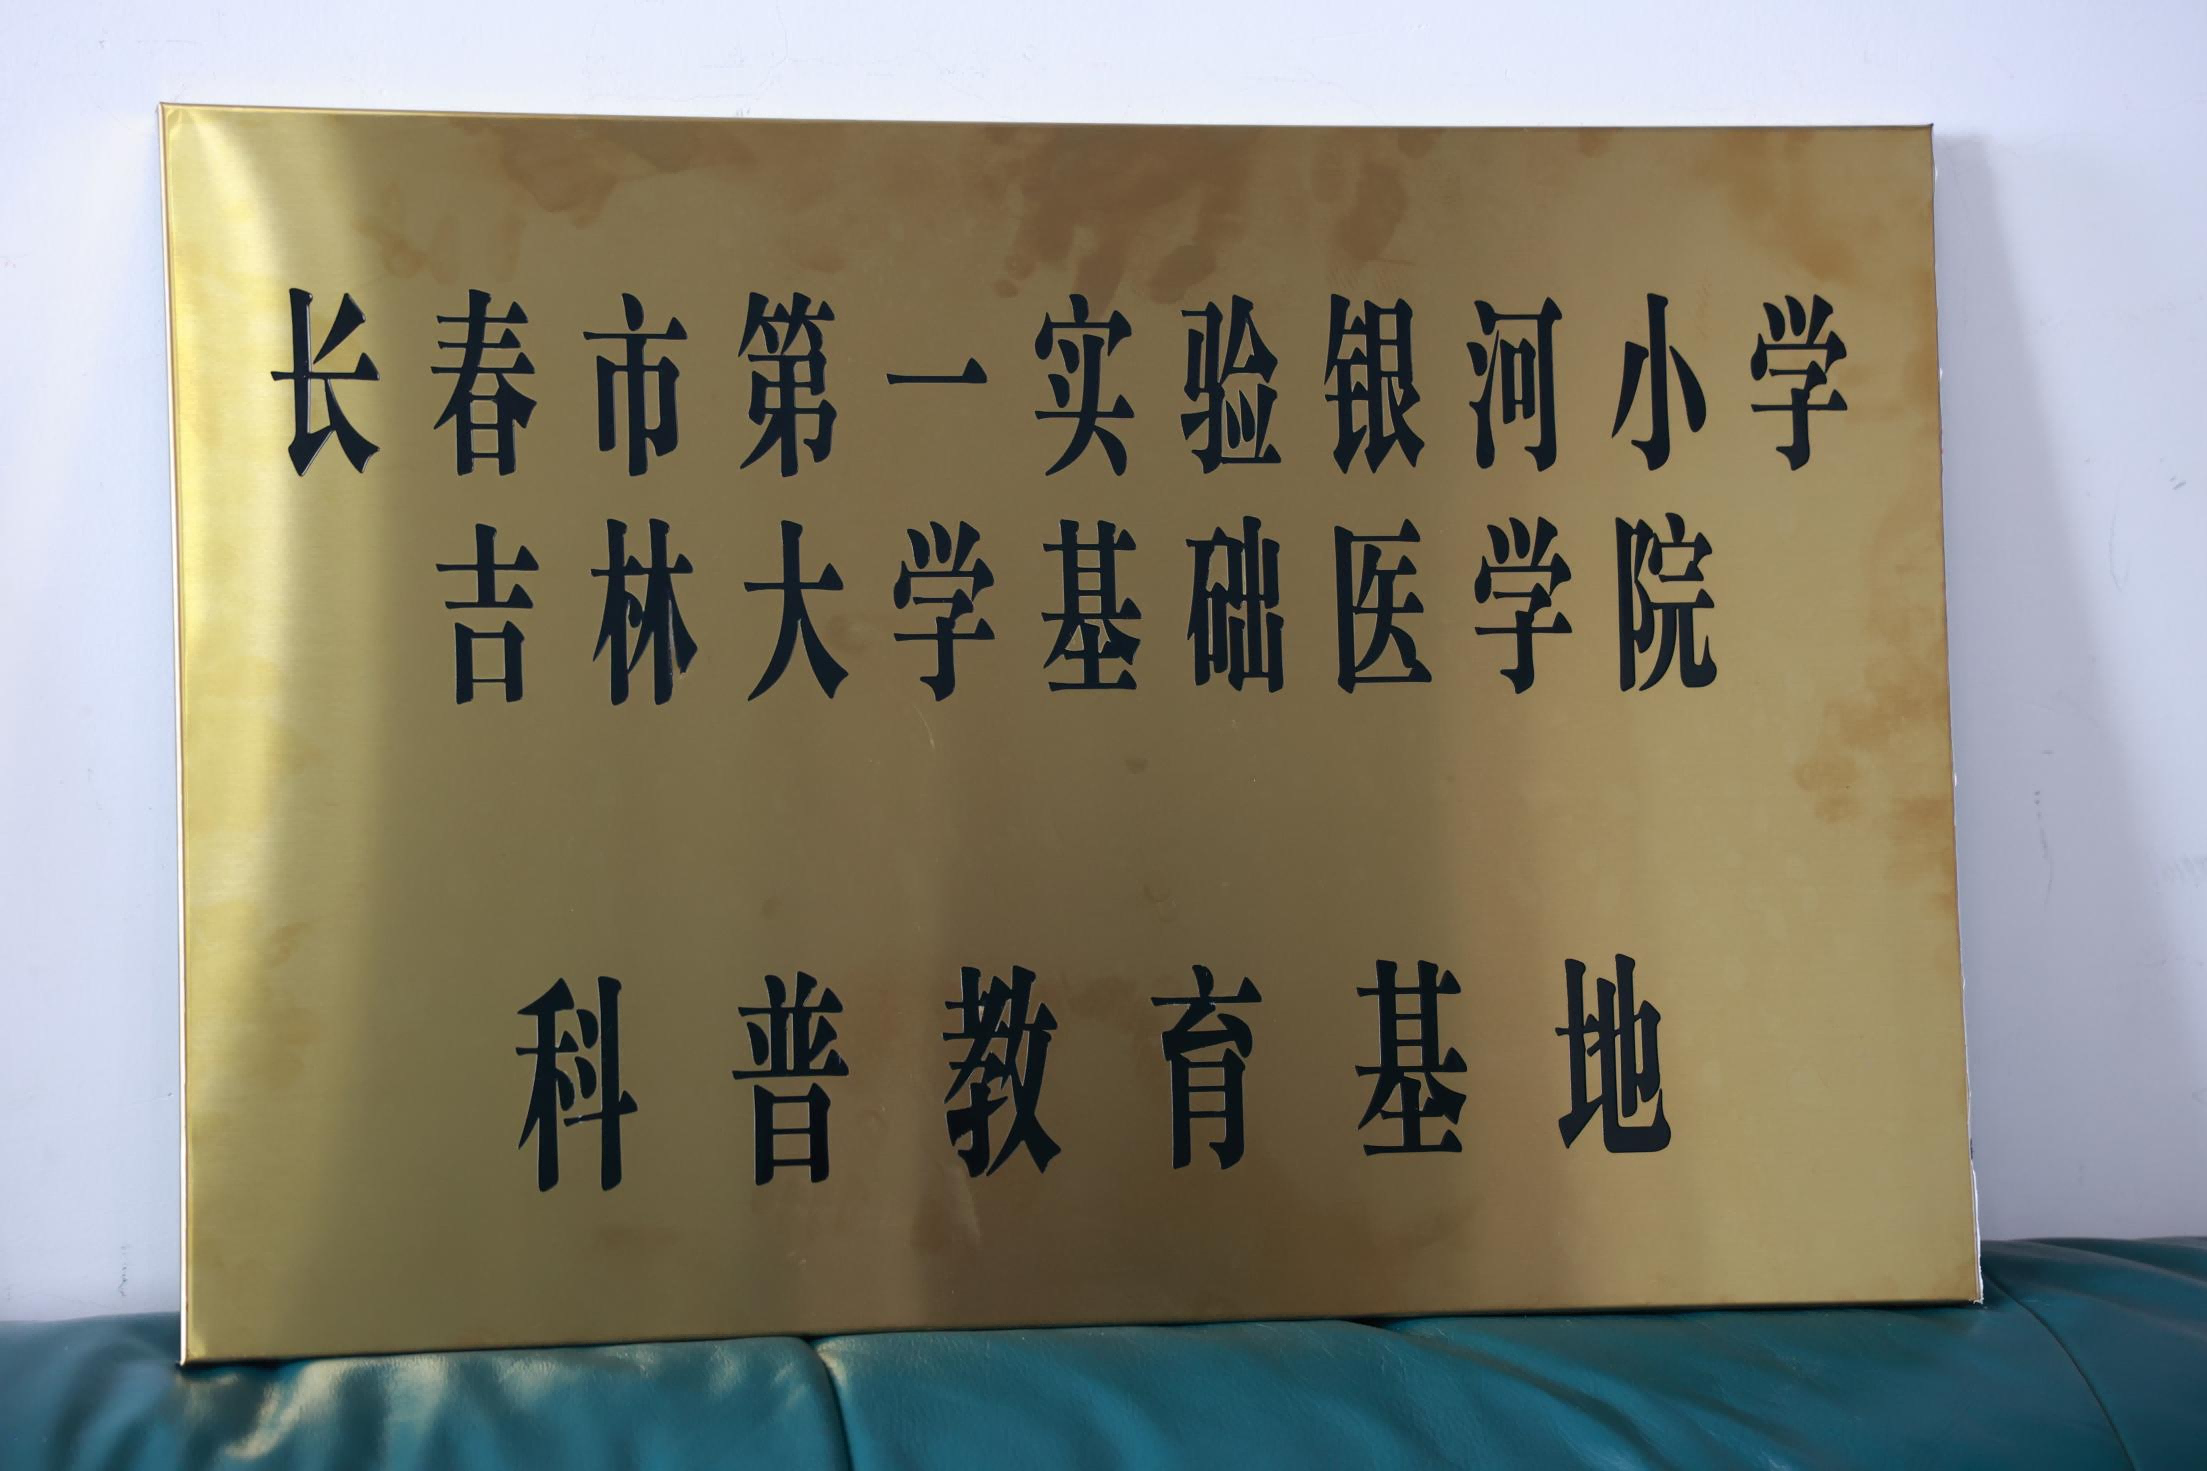 长春市第一实验银河小学
吉林大学基础医学院
科普教育基地